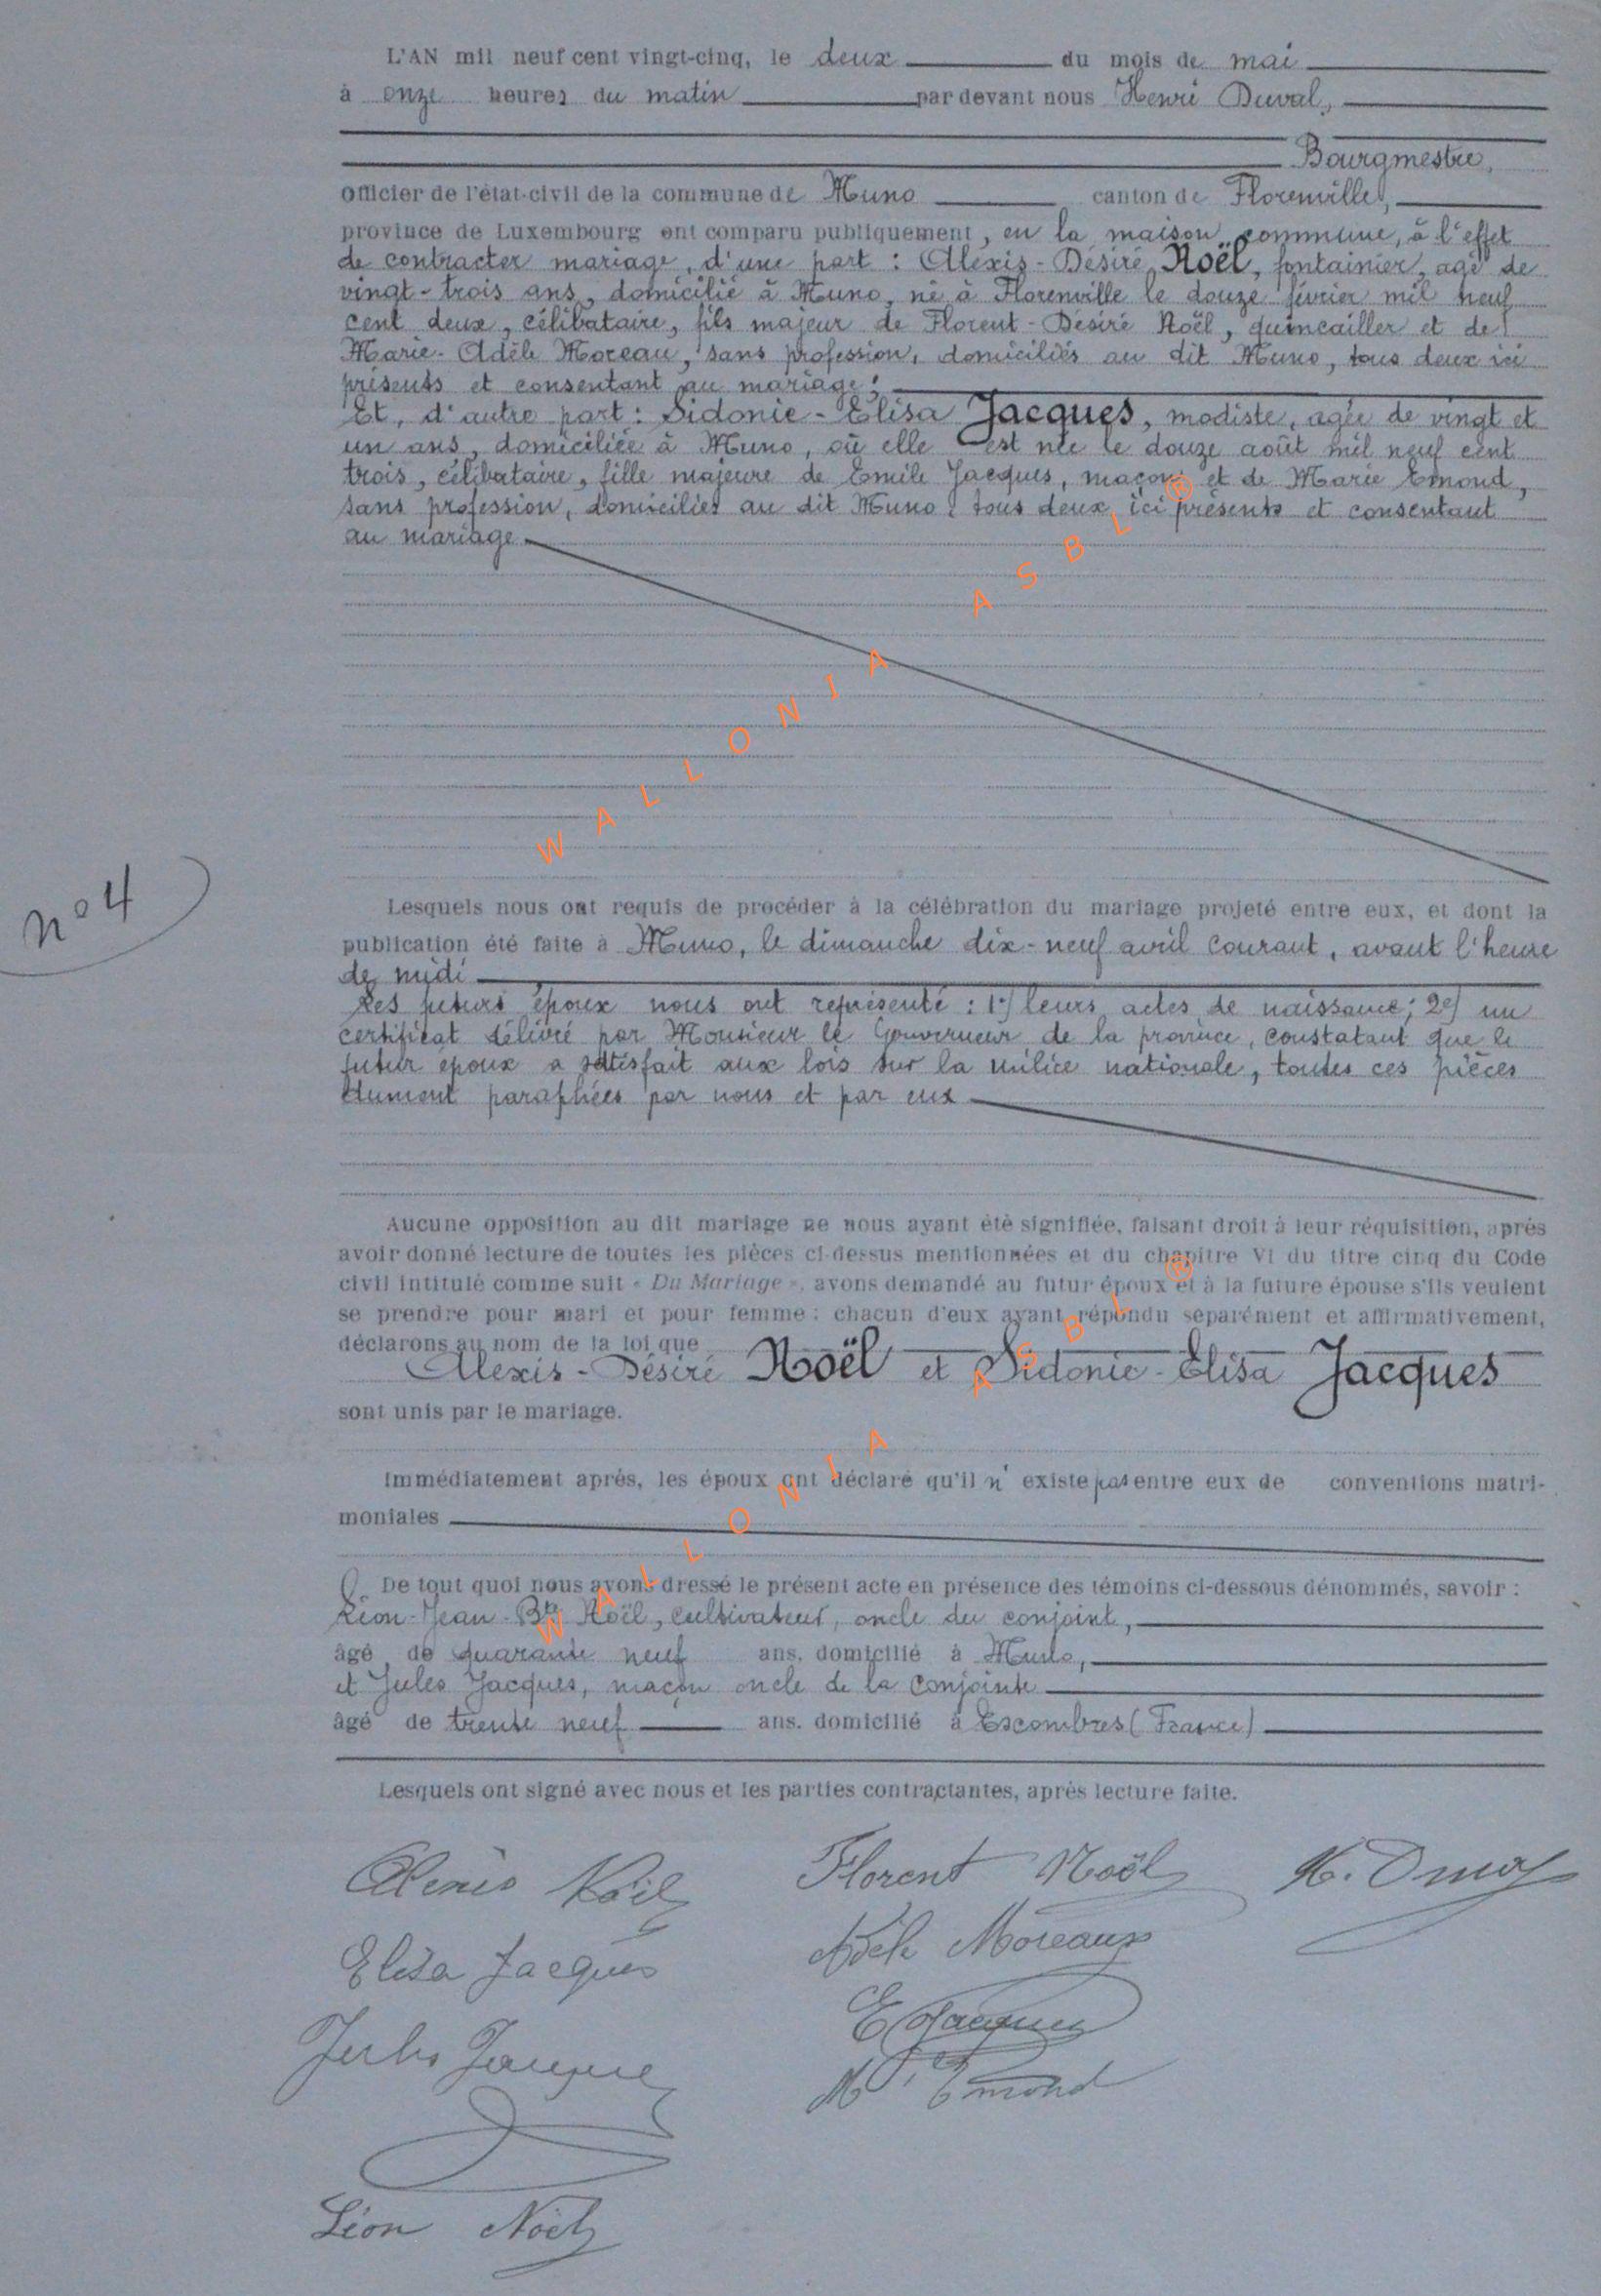 L'AN mil neuf cent vingt-cinq, le deux du mois de mai
à onze heures du matin par devant nous Henri Duval,
Bourgmestre,
officier de l'état-civil de la commune de Muno canton de Florenville,
province de Luxembourg ont comparu publiquement, en la maison commune, à l'effet
de contracter mariage, d'une part : Alexis-Désiré Noël, fontainier, agé de
vingt-trois ans, domicilié à Muno, né à Florenville le douze février mil neuf
cent deux, célibataire, fils majeur de Florent-Désiré Noël, quincailler et de
Marie-Adèle Moreau, sans profession, domiciliés au dit Muno, tous deux ici
présents et consentant au mariage;
Et, d'autre part : Sidonie-Elisa Jacques, modiste, agée de vingt et
un ans, domiciliée à Muno, où elle est née le douze août mil neuf cent
trois, célibataire, fille majeure de Emile Jacques, maçon et de Marie Emond,
sans profession, domiciliés au dit Muno, tous deux ici présents et consentant
au mariage
WALLONIA ASBL ®
n° 4
Lesquels nous ont requis de procéder à la célébration du mariage projeté entre eux, et dont la
publication été faite à Muno, le dimanche dix-neuf avril courant, avant l'heure
de midi
Les futurs époux nous ont représenté : 1°) leurs actes de naissance; 2°) un
certificat délivré par Monsieur le Gouverneur de la province, constatant que le
futur époux a satisfait aux lois sur la milice nationale, toutes ces pièces
dument paraphées par nous et par eux
Aucune opposition au dit mariage ne nous ayant été signifiée, faisant droit à leur réquisition, après
avoir donné lecture de toutes les pièces ci-dessus mentionnées et du chapitre VI du titre cinq du Code
civil intitulé comme suit « Du Mariage », avons demandé au futur époux et à la future épouse s'ils veulent
se prendre pour mari et pour femme : chacun d'eux ayant répondu séparément et affirmativement,
déclarons au nom de la loi que
Alexis-Désiré Noël et Sidonie-Elisa Jacques
sont unis par le mariage.
WALLONIA ASBL ®
Immédiatement après, les époux ont déclaré qu'il n'existe pas entre eux de conventions matri-
moniales
De tout quoi nous avons dressé le présent acte en présence des témoins ci-dessous dénommés, savoir :
Léon-Jean-Bte Noël, cultivateur, oncle du conjoint,
âgé de quarante neuf ans, domicilié à Muno,
et Jules Jacques, maçon oncle de la conjointe
âgé de trente neuf ans, domicilié à Escombres (France)
Lesquels ont signé avec nous et les parties contractantes, après lecture faite.
Alexis Noël Florent Noël
Elisa Jacques Adèle Moreaux
Jules Jacques E Jacques
M. Emond
Léon Noël